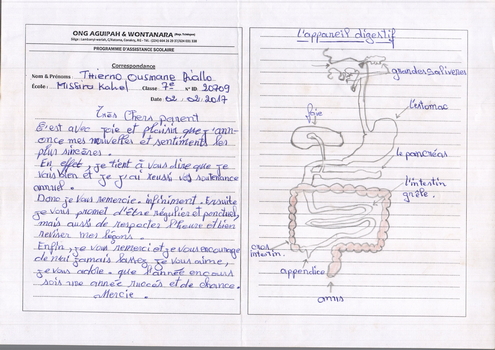 ONG AGUIPAH & WONTANARA
PROGRAMME D'ASSISTANCE SCOLAIRE
Correspondance
Nom & Prénoms : Thierno Ousmane Diallo
École : Missira Kabel Classe 7e N° ID: 20709
Date : 02.02.2017
Très Chers parent
C'est avec joie et plaisir que j'ann-
once mes nouvelles et sentiments les
plus sincères.
En effet, je tient à vous dire que je
vais bien et je j'ai reçus vos soutenance
annuel.
Donc je vous remercie infiniment. Ensuite
je vous promet d'être régulier et ponctuel,
mais aussi de respecter l'heure et bien
reviser mes leçons.
Enfin, je vous remerci et je vous encourage
de n'ai jamais lassez je vous aime,
je vous adore. que l'année encours
sois une année succés et de chance.
Mercie.
L'appareil digestif
grandes salivaires
l'estomac
foie
le pancréas
l'intestin
grêle.
gros
intestin.
appendice
anus